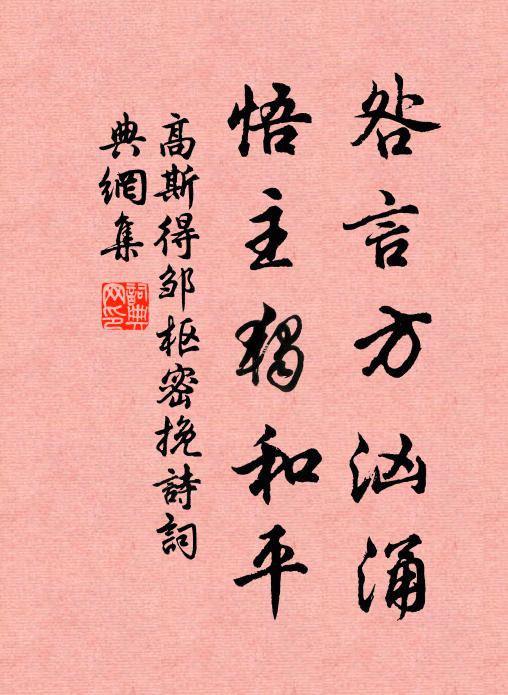 咎言方汹涌
悟主独和平
高斯得邹枢密挽詩詞
典網集
詞典网印